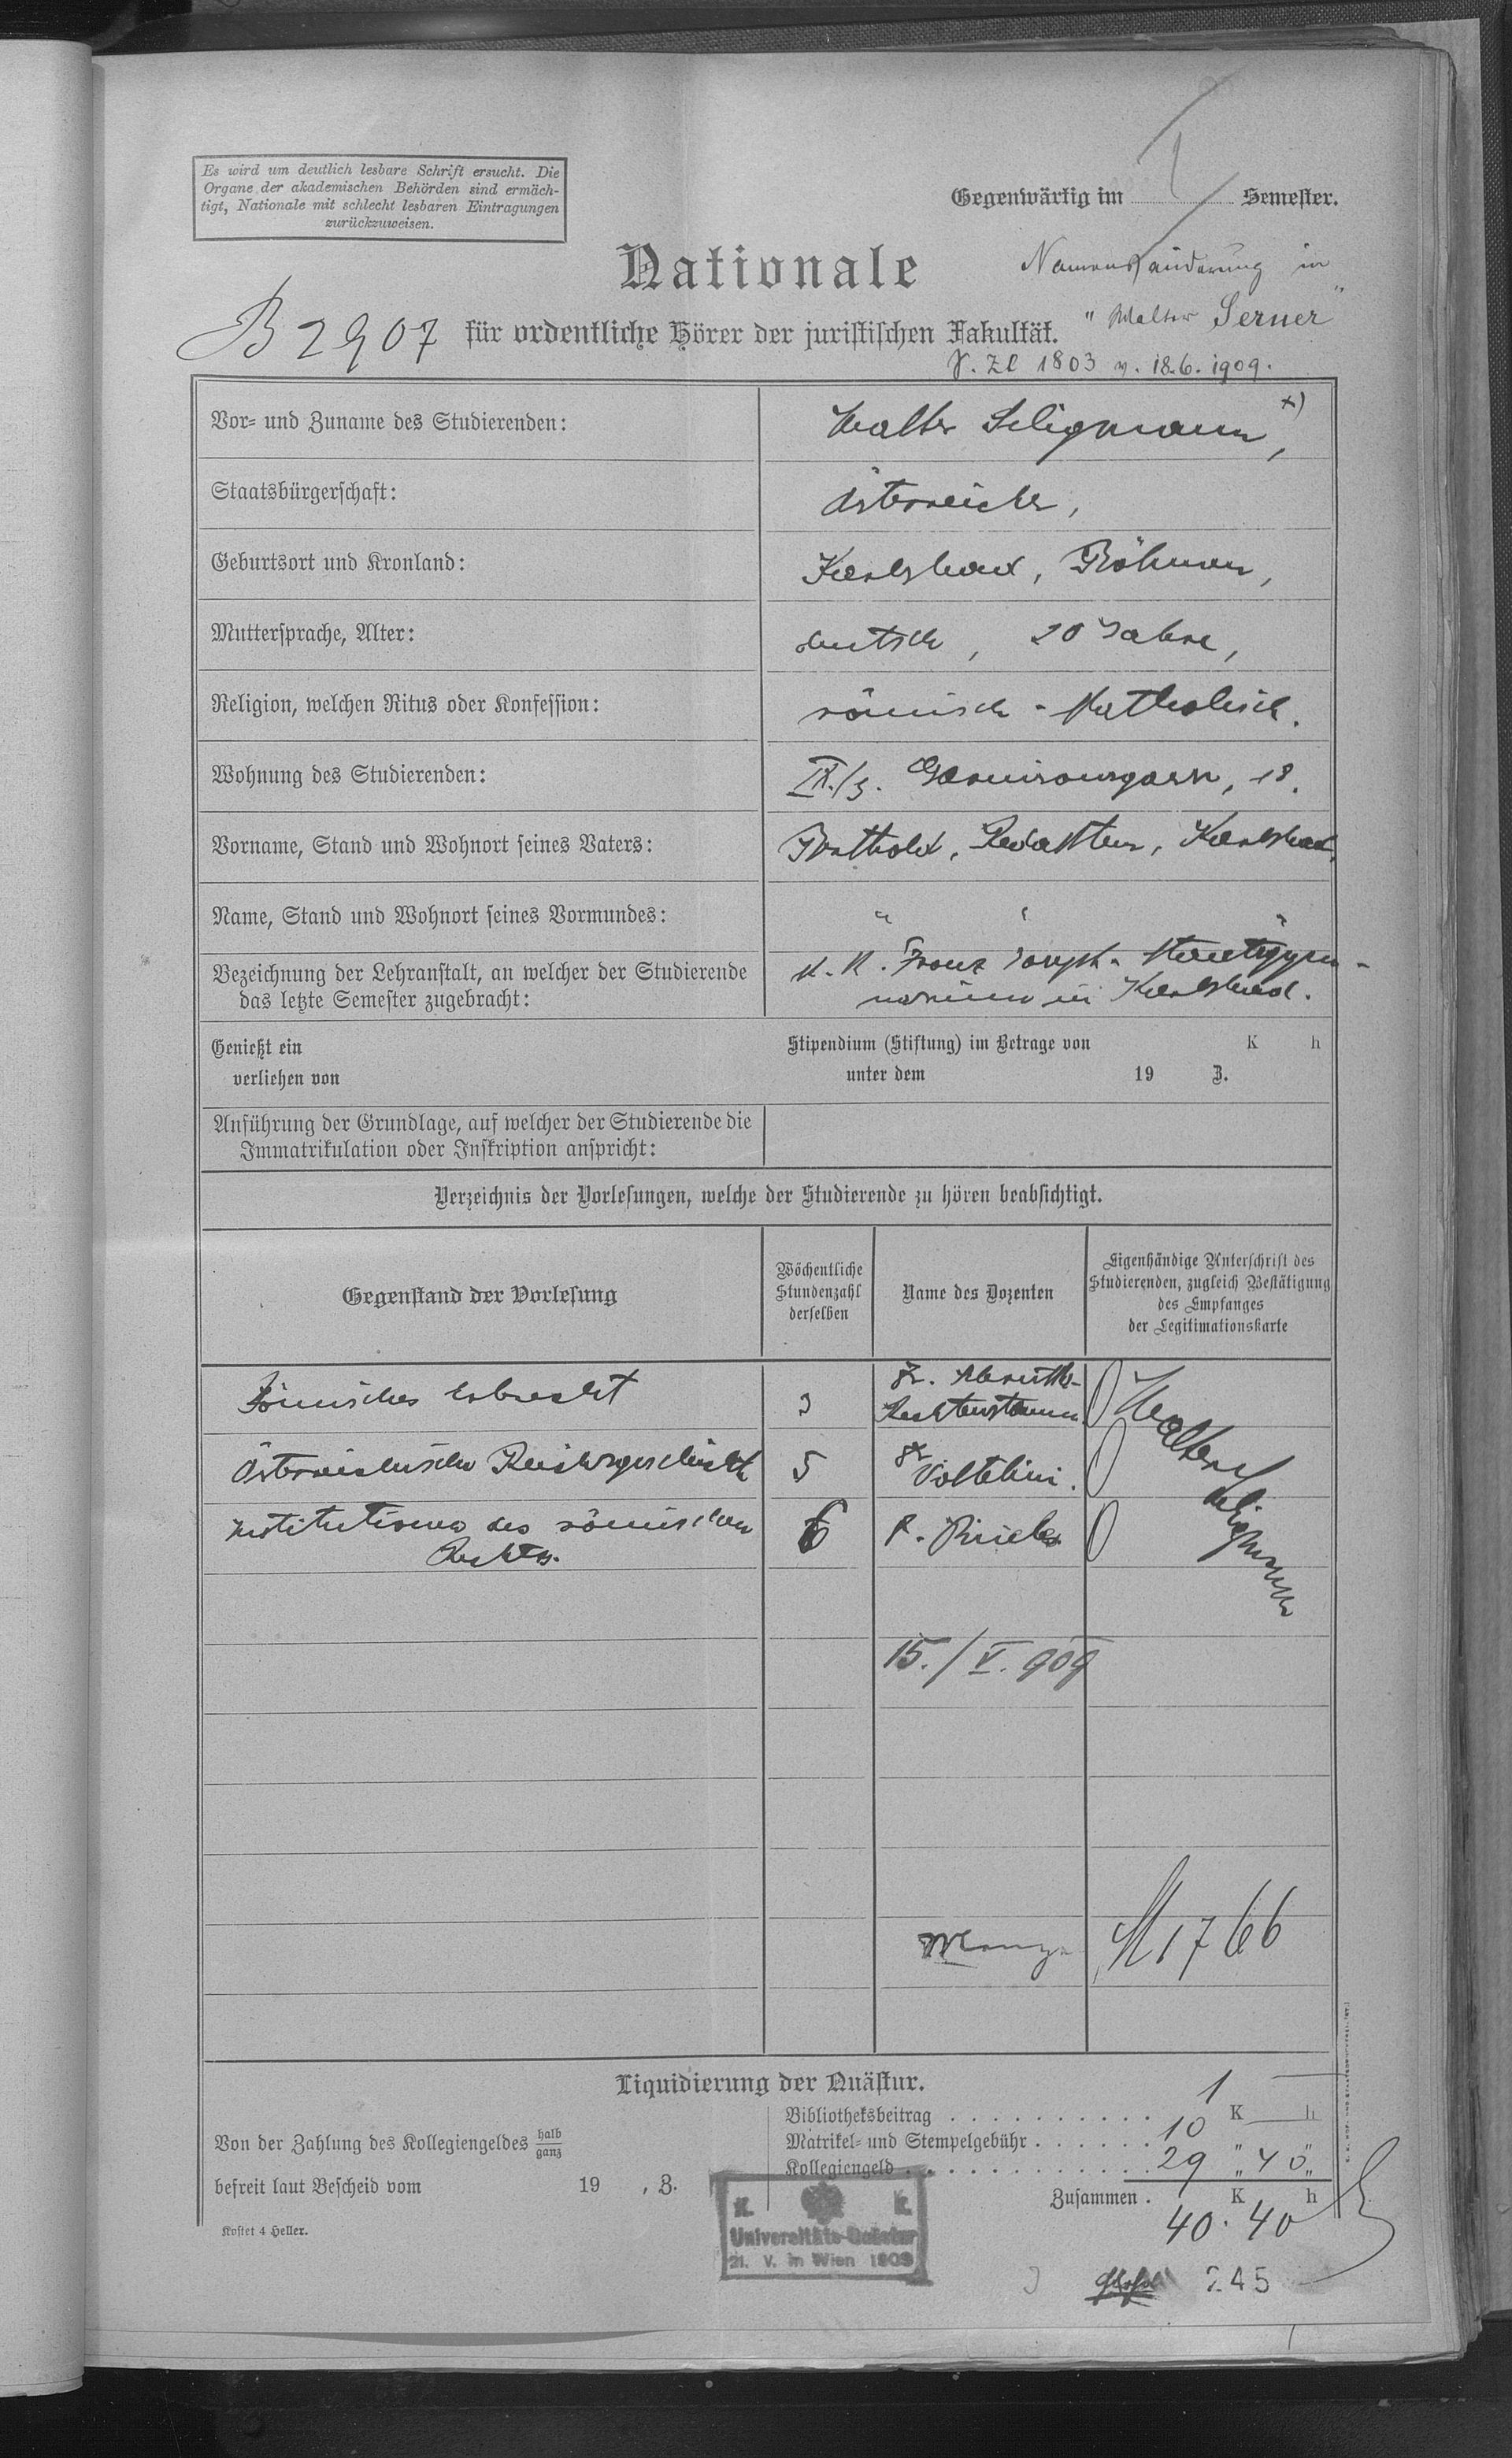 Es wird um deutlich lesbare Schrift ersucht. Die
Organe der akademischen Behörden sind ermäch-
tigt, Nationale mit schlecht lesbaren Eintragungen
zurückzuweisen.
Gegenwärtig im I Semester.
Nationale
Namensänderung in
B 2907 für ordentliche Hörer der juristischen Fakultät. "Walter Serner"
Zl 1803 v. 18.6.1909.
Vor- und Zuname des Studierenden: Walter Seligmann, x)
Staatsbürgerschaft: Österreicher,
Geburtsort und Kronland: Karlsbad, Böhmen,
Muttersprache, Alter: deutsch, 20 Jahre,
Religion, welchen Ritus oder Konfession: römisch-katholisch.
Wohnung des Studierenden: IX./3. Garnisongasse, 18.
Vorname, Stand und Wohnort seines Vaters: Berthold, Redakteur, Karlsbad.
Name, Stand und Wohnort seines Vormundes: " " "
Bezeichnung der Lehranstalt, an welcher der Studierende k. k. Franz Joseph-Staatsgym-
das letzte Semester zugebracht: nasium in Karlsbad.
Genießt ein Stipendium (Stiftung) im Betrage von K h
verliehen von unter dem 19 Z.
Anführung der Grundlage, auf welcher der Studierende die
Immatrikulation oder Inskription anspricht:
Verzeichnis der Vorlesungen, welche der Studierende zu hören beabsichtigt.
Gegenstand der Vorlesung
Wöchentliche
Stundenzahl
derselben
Name des Dozenten
Eigenhändige Unterschrift des
Studierenden, zugleich Bestätigung
des Empfanges
der Legitimationskarte
Römisches Erbrecht 3
Österreichische Reichsgeschichte 5 Voltelini.
Institutionen des römischen 6
Rechts.
Walter Seligmann
15./V. 909
M 1766
Liquidierung der Quästur.
Bibliotheksbeitrag . . . . . . . . . . 1 K — h
Matrikel- und Stempelgebühr . . . . . . 10 " "
Kollegiengeld . . . . . . . . . . . . . 29 " 40 "
Zusammen . K h
40 · 40
Von der Zahlung des Kollegiengeldes halb
ganz
befreit laut Bescheid vom 19 , Z.
Kostet 4 Heller.
K. K.
Universitäts-Quästur
21. V. in Wien 1909
245